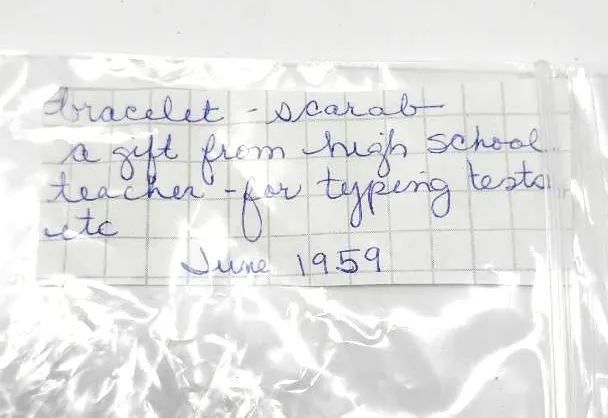 bracelet - scarab
a gift from high school
teacher - for typing tests
etc
June 1959